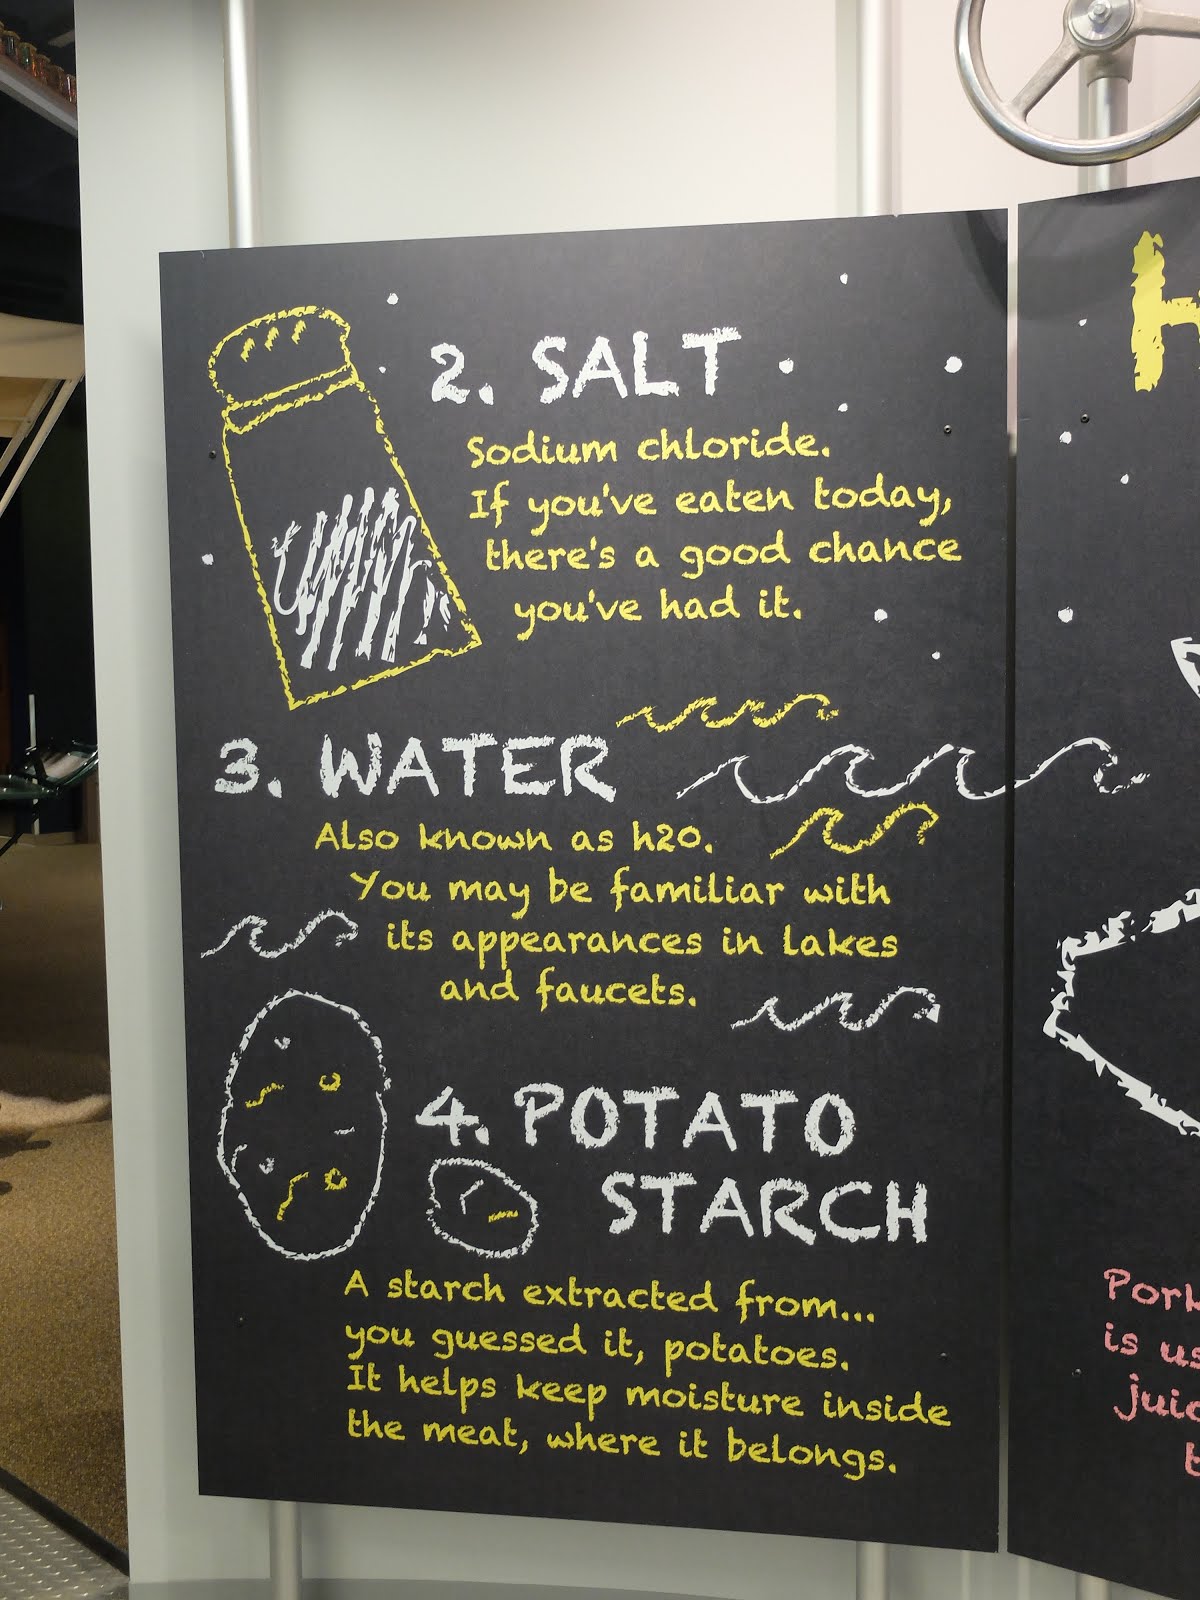 2. SALT
Sodium chloride.
If you've eaten today,
there's a good chance
you've had it.
3. WATER
Also known as h2o.
You may be familiar with
its appearances in lakes
and faucets.
4. POTATO
STARCH
A starch extracted from...
you guessed it, potatoes.
It helps keep moisture inside
the meat, where it belongs.
is